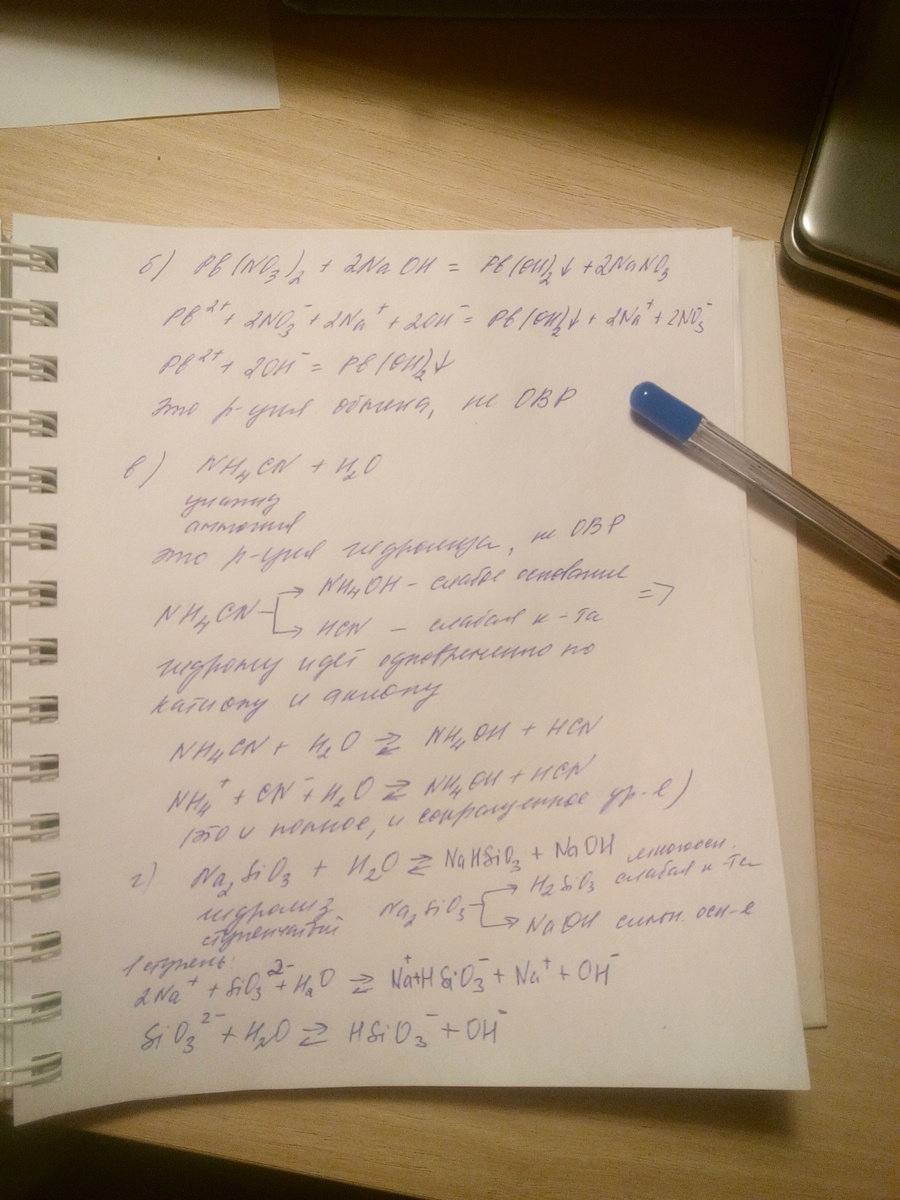 б) Pb(NO₃)₂ + 2NaOH = Pb(OH)₂↓ + 2NaNO₃
Pb²⁺ + 2NO₃⁻ + 2Na⁺ + 2OH⁻ = Pb(OH)₂↓ + 2Na⁺ + 2NO₃⁻
Pb²⁺ + 2OH⁻ = Pb(OH)₂↓
это р-ция обмена, не ОВР
в) NH₄CN + H₂O
цианид
аммония
это р-ция гидролиза, не ОВР
NH₄CN → NH₄OH - слабое основание =>
→ HCN - слабая к-та
гидролиз идёт одновременно по
катиону и аниону
NH₄CN + H₂O ⇄ NH₄OH + HCN
NH₄⁺ + CN⁻ + H₂O ⇄ NH₄OH + HCN
(это и полное, и сокращенное ур-е)
г) Na₂SiO₃ + H₂O ⇄ NaHSiO₃ + NaOH
гидролиз ступенчатый
Na₂SiO₃ → H₂SiO₃ многоосн. слабая к-та
→ NaOH сильн. осн-е
1 ступень:
2Na⁺ + SiO₃²⁻ + H₂O ⇄ Na⁺ + HSiO₃⁻ + Na⁺ + OH⁻
SiO₃²⁻ + H₂O ⇄ HSiO₃⁻ + OH⁻